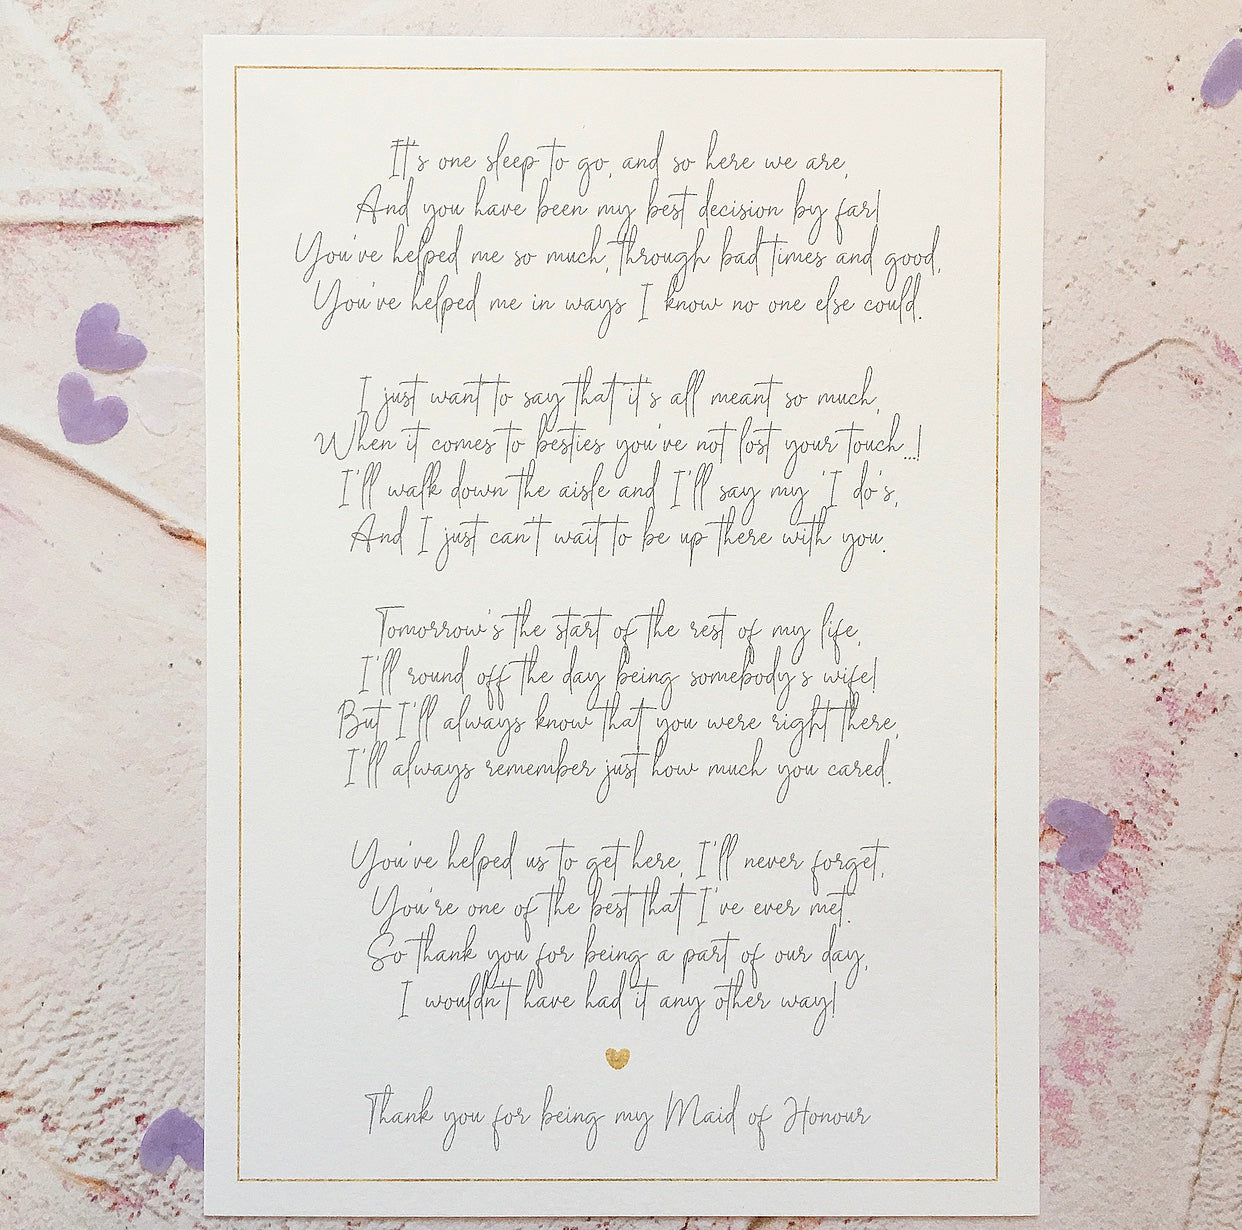 It's one sleep to go, and so here we are,
And you have been my best decision by far!
You've helped me so much, through bad times and good,
You've helped me in ways I know no one else could.
I just want to say that it's all meant so much,
When it comes to besties you've not lost your touch...!
I'll walk down the aisle and I'll say my 'I do's,
And I just can't wait to be up there with you.
Tomorrow's the start of the rest of my life,
I'll round off the day being somebody's wife!
But I'll always know that you were right there,
I'll always remember just how much you cared.
You've helped us to get here, I'll never forget,
You're one of the best that I've ever met.
So thank you for being a part of our day,
I wouldn't have had it any other way!
Thank you for being my Maid of Honour